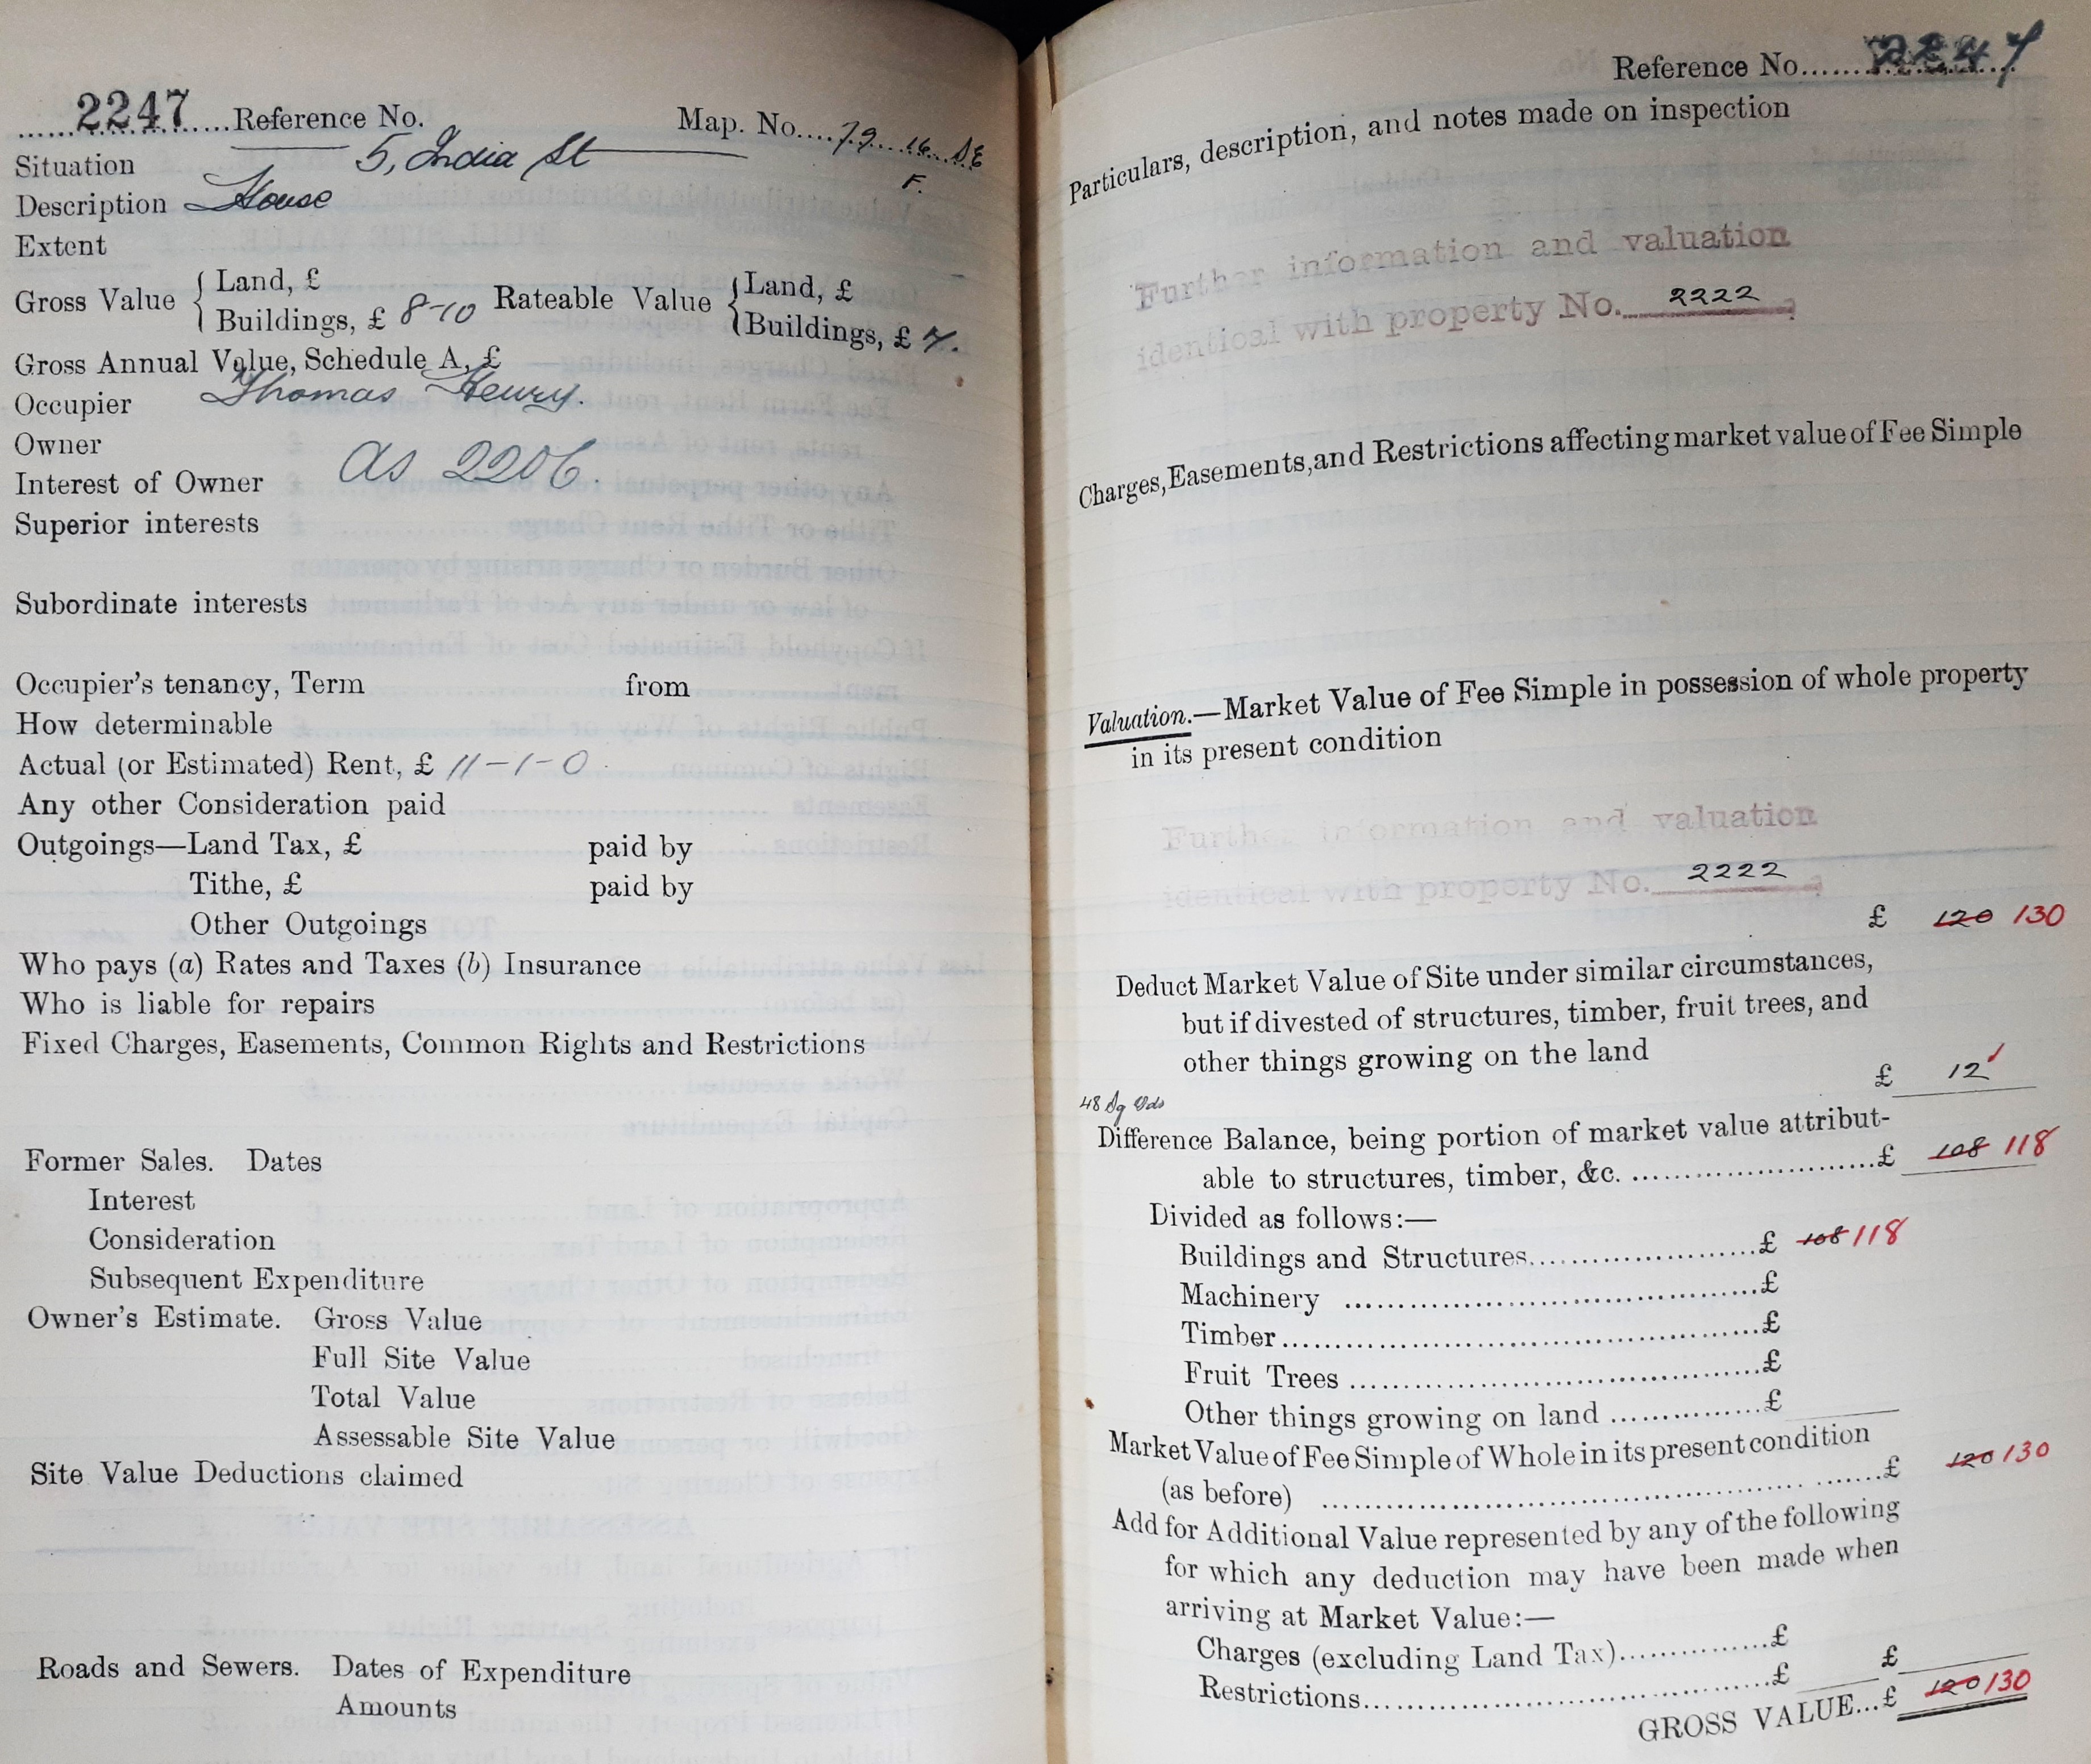 2247 Reference No. Map. No. 79 16 SE
F.
Situation 5, India St
Description House
Extent
Gross Value { Land, £ Rateable Value { Land, £
Buildings, £ 8-10 Buildings, £ 7.
Gross Annual Value, Schedule A, £
Occupier Thomas Henry.
Owner
Interest of Owner as 2206.
Superior interests
Subordinate interests
Occupier's tenancy, Term from
How determinable
Actual (or Estimated) Rent, £ 11-1-0
Any other Consideration paid
Outgoings—Land Tax, £ paid by
Tithe, £ paid by
Other Outgoings
Who pays (a) Rates and Taxes (b) Insurance
Who is liable for repairs
Fixed Charges, Easements, Common Rights and Restrictions
Former Sales. Dates
Interest
Consideration
Subsequent Expenditure
Owner's Estimate. Gross Value
Full Site Value
Total Value
Assessable Site Value
Site Value Deductions claimed
Roads and Sewers. Dates of Expenditure
Amounts
Reference No. 2247
Particulars, description, and notes made on inspection
Further information and valuation
identical with property No. 2222
Charges, Easements, and Restrictions affecting market value of Fee Simple
Valuation.—Market Value of Fee Simple in possession of whole property
in its present condition
Further information and valuation
identical with property No. 2222
£ 120 130
Deduct Market Value of Site under similar circumstances,
but if divested of structures, timber, fruit trees, and
other things growing on the land
£ 12
48 Sq Yds
Difference Balance, being portion of market value attribut-
able to structures, timber, &c. £ 108 118
Divided as follows:—
Buildings and Structures £ 108 118
Machinery £
Timber £
Fruit Trees £
Other things growing on land £
Market Value of Fee Simple of Whole in its present condition
(as before) £ 120 130
Add for Additional Value represented by any of the following
for which any deduction may have been made when
arriving at Market Value:—
Charges (excluding Land Tax) £
Restrictions £ £
GROSS VALUE...£ 120 130